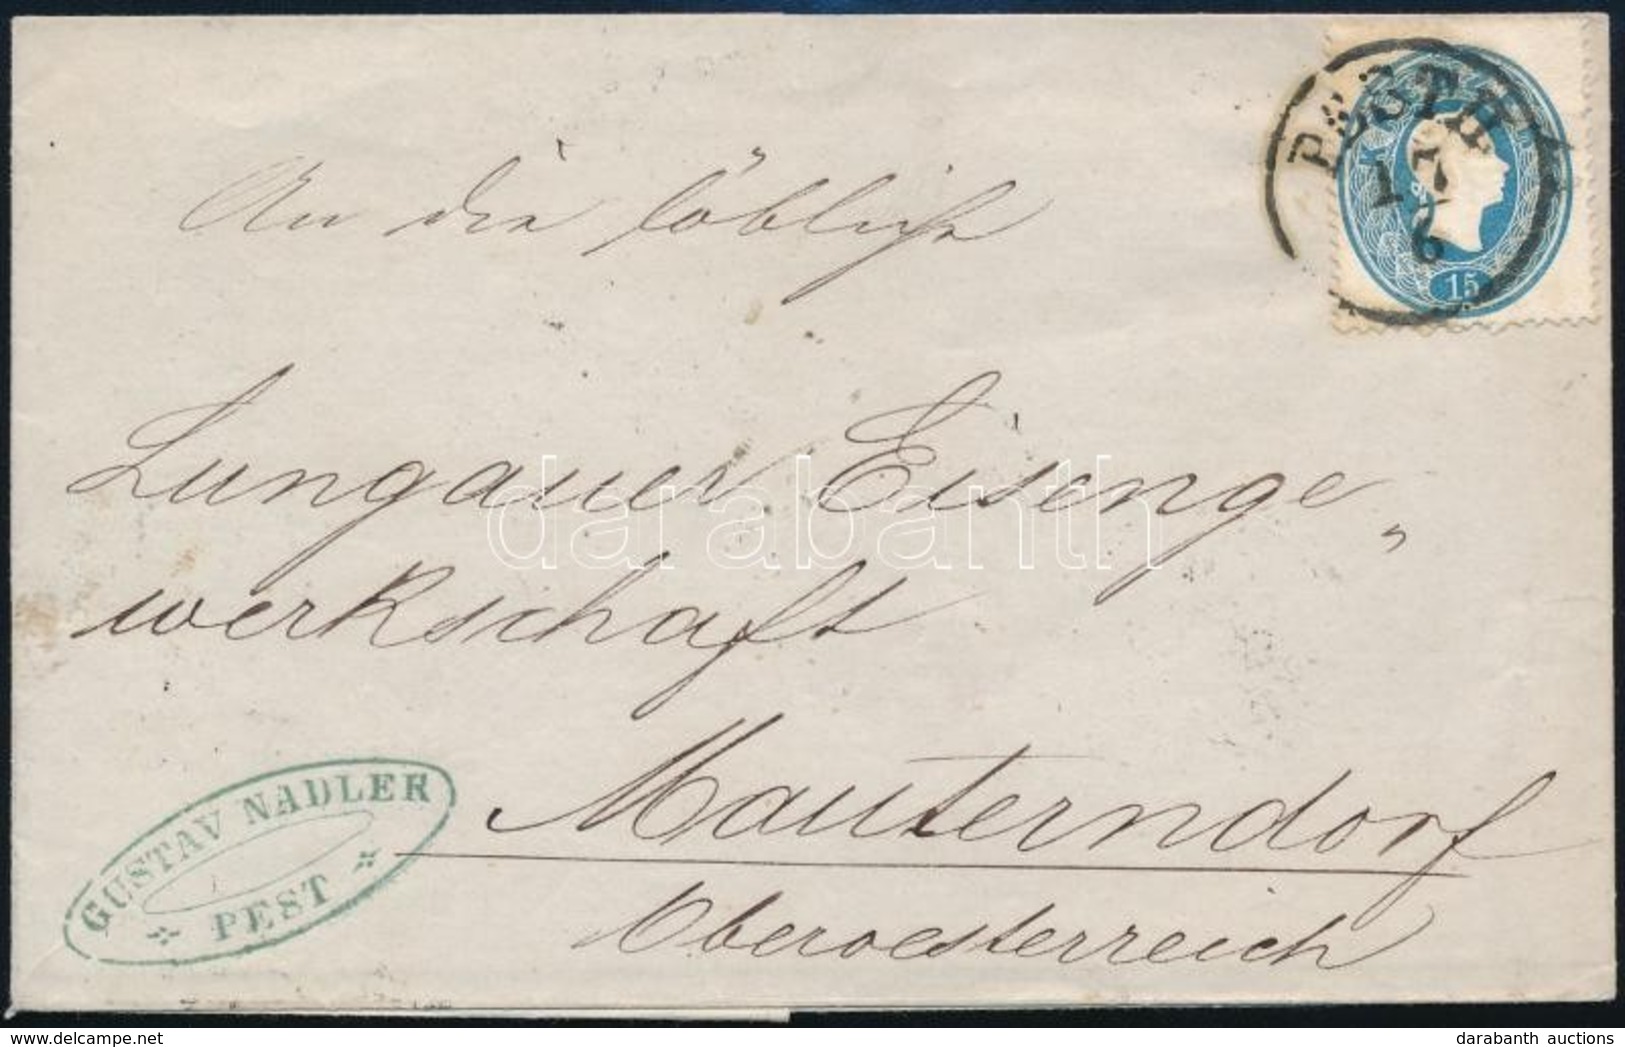 PESTH
17
6
15
An die löbliche
Lungauer Eisenge„
werkschaft
Mauterndorf
Oberoesterreich
GUSTAV NADLER
PEST
darabanth
darabanth auctions